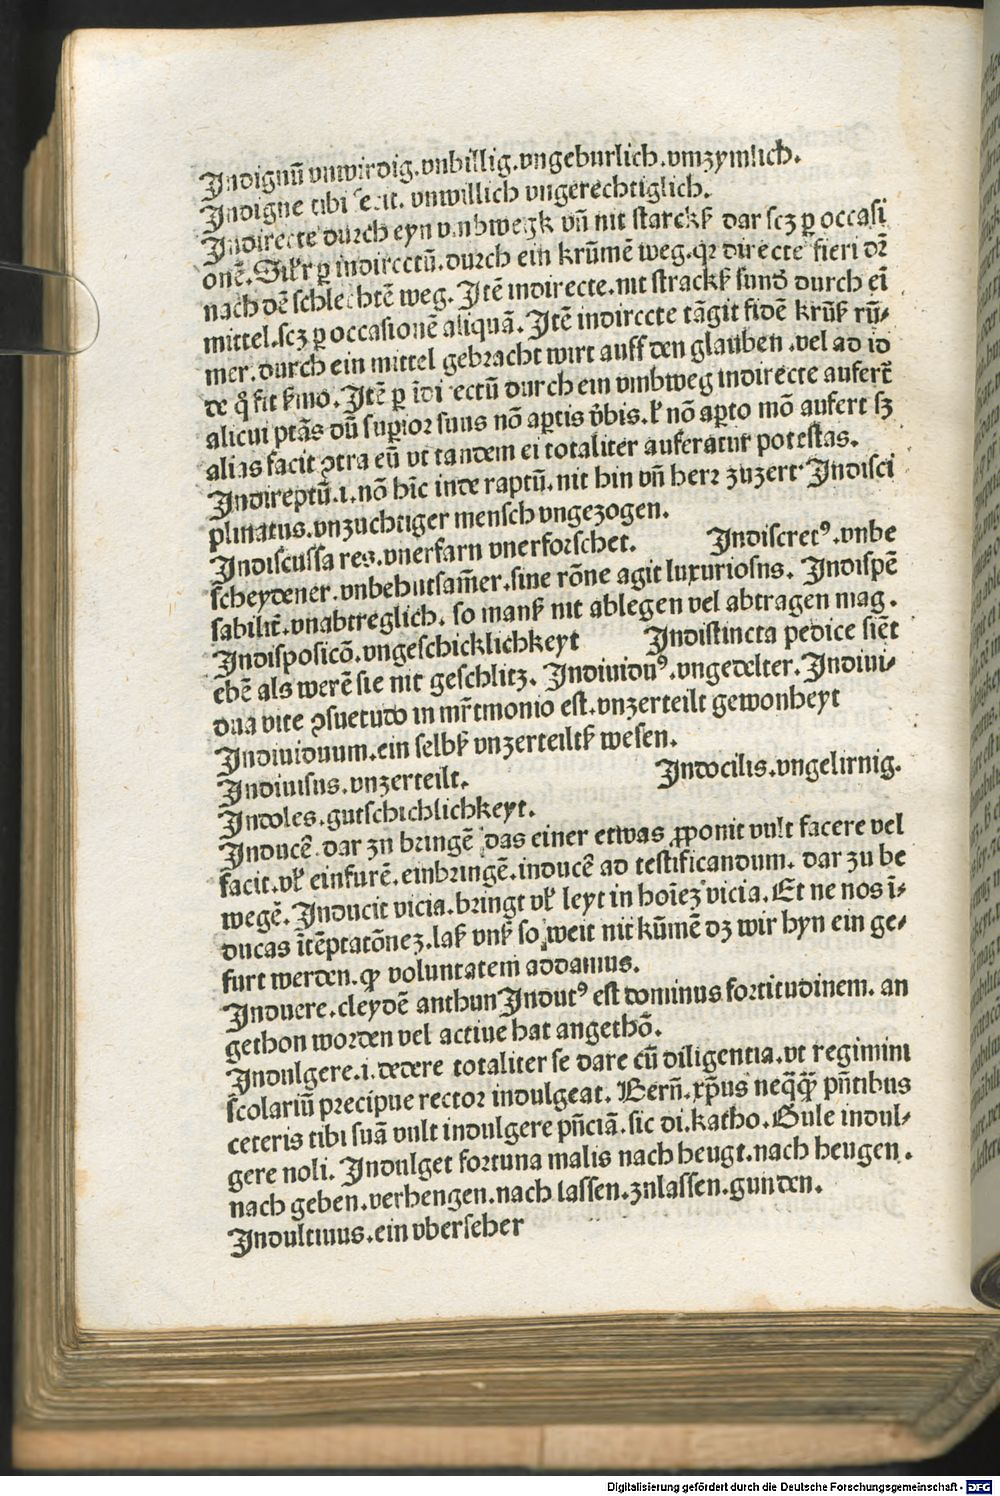 Indignū vnwirdig.vnbillig.vngeburlich.vmzymlich.
Indigne tibi vnwillich vngerechtiglich.
Indirecte durch eyn vmbwegk vn̄ nit starckꝭ dar scꝫ ꝑ occasi
onē. Sil'r ꝑ indirectū.durch ein krūmē weg.qꝛ directe fieri dꝛ̄
nach dē schlechtē weg. Itē indirecte.nit strackꝭ sund' durch eī
mittel.scꝫ ꝑ occasionē aliquā. Itē indirecte tāgit fidē krūꝭ rū⸗
mer.durch ein mittel gebracht wirt auff den glauben .vel ad id
de q̊ fit ẜmo. Itē ꝑ īdi ectū durch ein vmbweg indirecte aufert̄
alicui ptās dū supꝛioꝛ suus nō aꝑtis v̓bis.ꝉ nō aꝑto mō aufert sꝫ
alias facit ꝯtra eū vt tandem ei totaliter auferatur potestas.
Indireptū.i.nō hīc inde raptū.nit hin vn̄ herꝛ zuzert Indisci
plinatus.vnzuchtiger mensch vngezogen.
Indiscussa res.vnerfarn vnerfoꝛschet. Indiscretꝰ.vnbe
scheydener.vnbehutsam̄er.sine rōne agit luxuriosus. Indispē
sabilit̄.vnabtreglich. so manꝭ nit ablegen vel abtragen mag.
Indisposicō.vngeschicklichkeyt Indistincta pedice siēt
ebē als werē sie nit geschlitz. Indiuiduꝰ.vngedelter. Indiui⸗
dua vite ꝯsuetudo in mr̄tmonio est.vnzerteilt gewonheyt
Indiuiduum.ein selbꝭ vnzerteiltꝭ wesen.
Indiuisus.vnzerteilt. Indocilis.vngelirnig.
Indoles.gutschichlichkeyt.
Inducē.dar zu bringē das einer etwas ꝓponit vult facere vel
facit.vꝉ einfurē.einbringē.inducē ad testificandum. dar zu be
wegē. Inducit vicia.bringt vꝉ leyt in hoīeꝫ vicia. Et ne nos ī⸗
ducas ītēptatōneꝫ.laꝭ vnꝭ so weit nit kūmē dꝫ wir hyn ein ge⸗
furt werden.ꝙ voluntatem addamus.
Induere.cleydē anthun Indutꝰ est dominus foꝛtitudinem. an
gethon woꝛden vel actiue hat angethō.
Indulgere.i.dedere totaliter se dare cū diligentia.vt regimini
scolariū precipue rectoꝛ indulgeat. Bern̄.xp̄us neq̄ꝙ̄ pn̄tibus
ceteris tibi suā vult indulgere pn̄ciā.sic di.katho.Gule indul⸗
gere noli. Indulget foꝛtuna malis nach heugt.nach heugen.
nach geben.verhengen.nach lassen.zulassen.gunden.
Indultiuus.ein vberseher
Digitalisierung gefördert durch die Deutsche Forschungsgemeinschaft - DFG